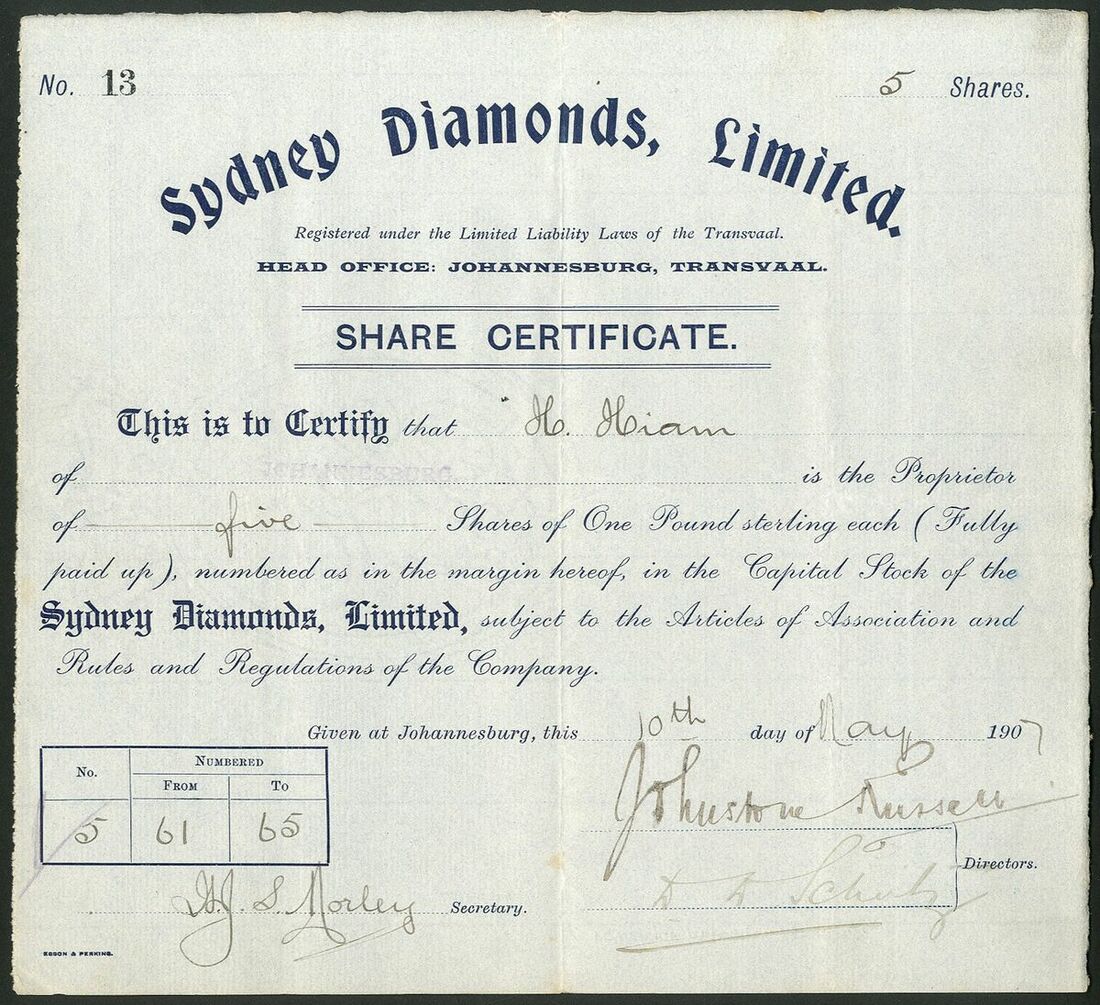 No. 13
5 Shares.
Sydney Diamonds, Limited.
Registered under the Limited Liability Laws of the Transvaal.
HEAD OFFICE: JOHANNESBURG, TRANSVAAL.
SHARE CERTIFICATE.
This is to Certify that H. Hiam
JOHANNESBURG.
of is the Proprietor
of five Shares of One Pound sterling each (Fully
paid up), numbered as in the margin hereof, in the Capital Stock of the
Sydney Diamonds, Limited, subject to the Articles of Association and
Rules and Regulations of the Company.
Given at Johannesburg, this 10th day of May 1907
No. NUMBERED
FROM To
5 61 65
Johnstone Russell
Directors.
Schutz
S. Morley Secretary.
ESSON & PERKINS.